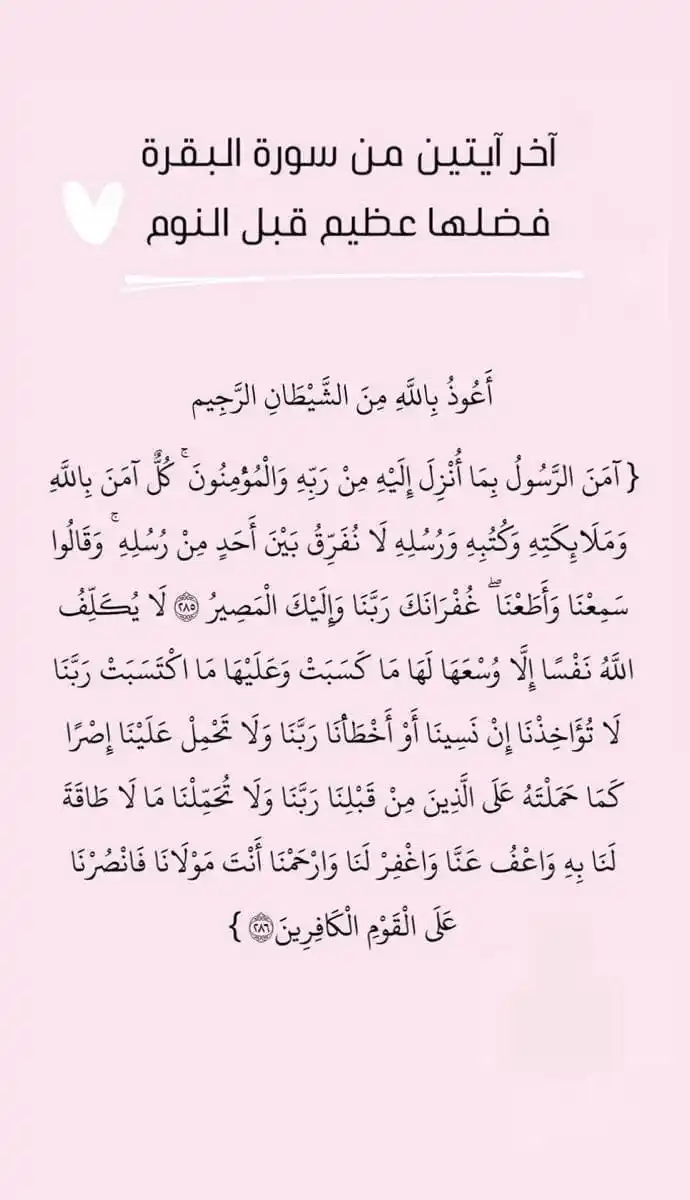 آخر آيتين من سورة البقرة
فضلها عظيم قبل النوم
أَعُوذُ بِاللَّهِ مِنَ الشَّيْطَانِ الرَّجِيم
{ آمَنَ الرَّسُولُ بِمَا أُنْزِلَ إِلَيْهِ مِنْ رَبِّهِ وَالْمُؤْمِنُونَ ۚ كُلٌّ آمَنَ بِاللَّهِ
وَمَلَائِكَتِهِ وَكُتُبِهِ وَرُسُلِهِ لَا نُفَرِّقُ بَيْنَ أَحَدٍ مِنْ رُسُلِهِ ۚ وَقَالُوا
سَمِعْنَا وَأَطَعْنَا ۖ غُفْرَانَكَ رَبَّنَا وَإِلَيْكَ الْمَصِيرُ ٢٨٥ لَا يُكَلِّفُ
اللَّهُ نَفْسًا إِلَّا وُسْعَهَا لَهَا مَا كَسَبَتْ وَعَلَيْهَا مَا اكْتَسَبَتْ رَبَّنَا
لَا تُؤَاخِذْنَا إِنْ نَسِينَا أَوْ أَخْطَأْنَا رَبَّنَا وَلَا تَحْمِلْ عَلَيْنَا إِصْرًا
كَمَا حَمَلْتَهُ عَلَى الَّذِينَ مِنْ قَبْلِنَا رَبَّنَا وَلَا تُحَمِّلْنَا مَا لَا طَاقَةَ
لَنَا بِهِ وَاعْفُ عَنَّا وَاغْفِرْ لَنَا وَارْحَمْنَا أَنْتَ مَوْلَانَا فَانْصُرْنَا
عَلَى الْقَوْمِ الْكَافِرِينَ ٢٨٦ }